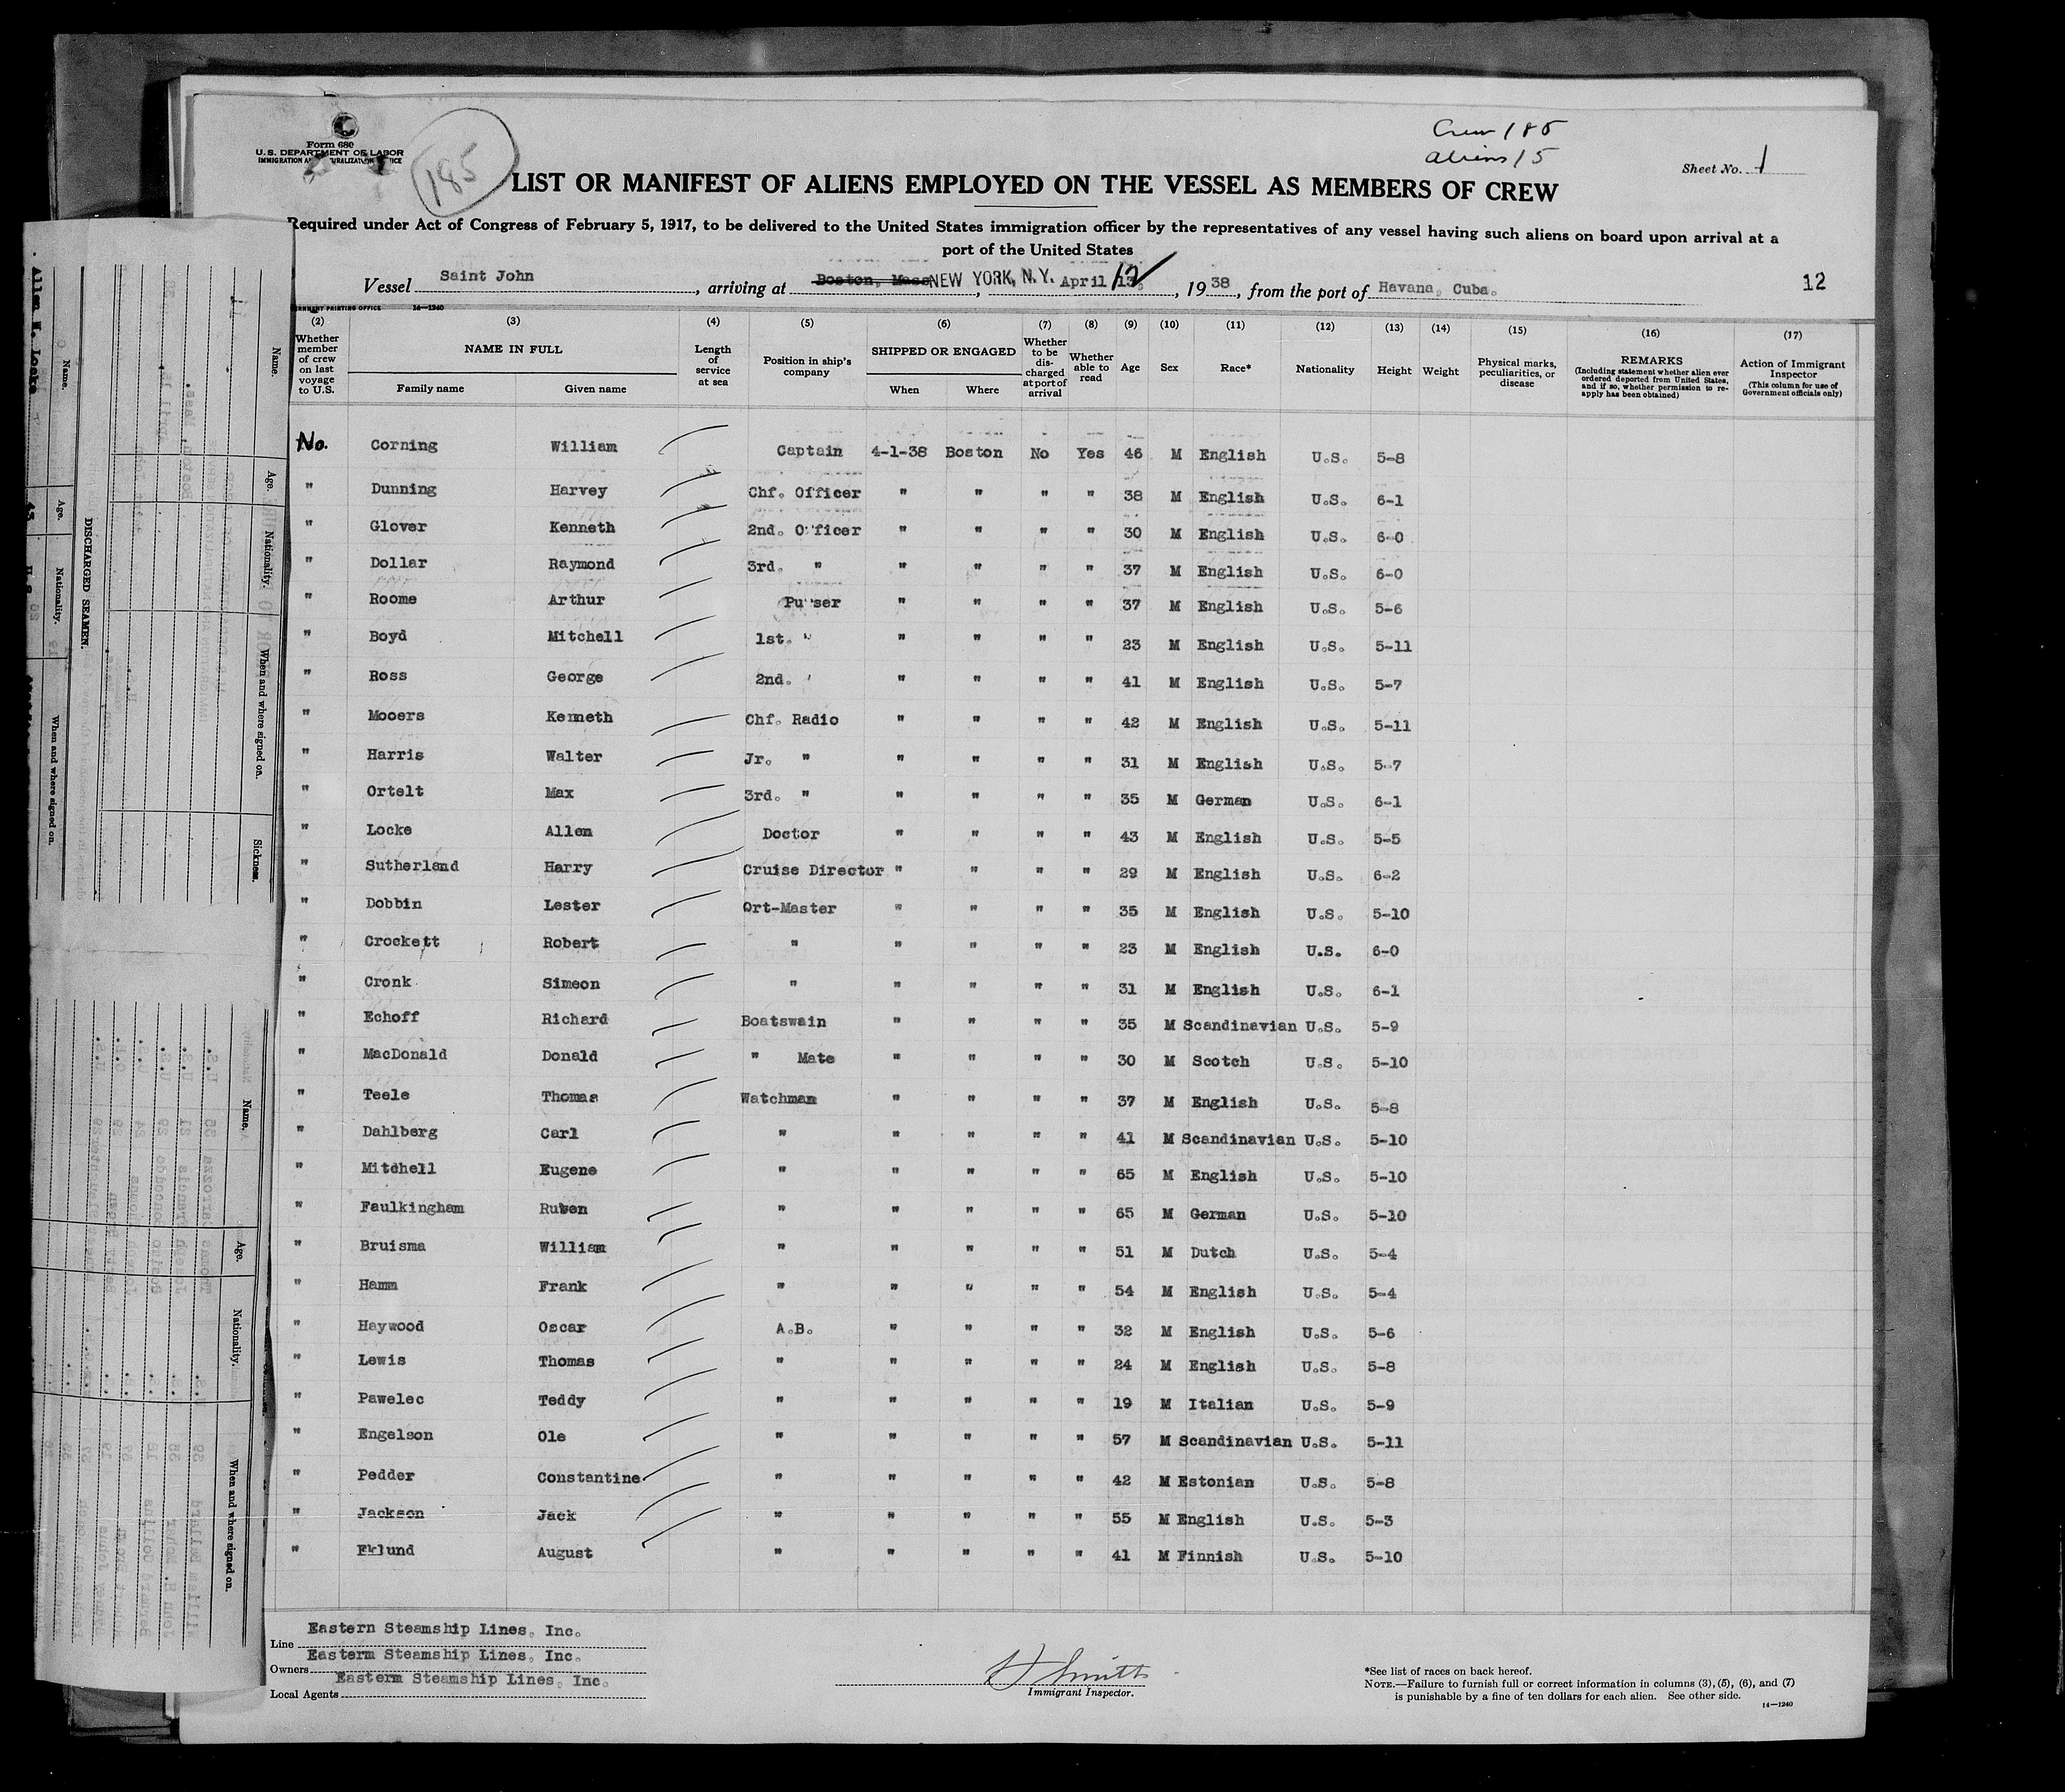 Form 680
U. S. DEPARTMENT OF LABOR
185
Crew 185
aliens 15
Sheet No. 1
LIST OR MANIFEST OF ALIENS EMPLOYED ON THE VESSEL AS MEMBERS OF CREW
Required under Act of Congress of February 5, 1917, to be delivered to the United States immigration officer by the representatives of any vessel having such aliens on board upon arrival at a
port of the United States
Vessel Saint John, arriving at Boston, Mass NEW YORK, N.Y. April 12, 1938, from the port of Havana, Cuba. 12
14—1240
(2) (3) (4) (5) (6) (7) (8) (9) (10) (11) (12) (13) (14) (15) (16) (17)
Whether member of crew on last voyage to U.S. NAME IN FULL Family name Given name Length of service at sea Position in ship's company SHIPPED OR ENGAGED When Where Whether to be discharged at port of arrival Whether able to read Age Sex Race* Nationality Height Weight Physical marks, peculiarities, or disease REMARKS (Including statement whether alien ever ordered deported from United States, and if so, whether permission to reapply has been obtained) Action of Immigrant Inspector (This column for use of Government officials only)
No. Corning William Captain 4-1-38 Boston No Yes 46 M English U.S. 5-8
" Dunning Harvey Chf. Officer " " " " 38 M English U.S. 6-1
" Glover Kenneth 2nd. Officer " " " " 30 M English U.S. 6-0
" Dollar Raymond 3rd. " " " " " 37 M English U.S. 6-0
" Roome Arthur Purser " " " " 37 M English U.S. 5-6
" Boyd Mitchell 1st. " " " " " 23 M English U.S. 5-11
" Ross George 2nd. " " " " " 41 M English U.S. 5-7
" Mooers Kenneth Chf. Radio " " " " 42 M English U.S. 5-11
" Harris Walter Jr. " " " " " 31 M English U.S. 5-7
" Ortelt Max 3rd. " " " " " 35 M German U.S. 6-1
" Locke Allen Doctor " " " " 43 M English U.S. 5-5
" Sutherland Harry Cruise Director " " " " 29 M English U.S. 6-2
" Dobbin Lester Qrt-Master " " " " 35 M English U.S. 5-10
" Crockett Robert " " " " " 23 M English U.S. 6-0
" Cronk Simeon " " " " " 31 M English U.S. 6-1
" Echoff Richard Boatswain " " " " 35 M Scandinavian U.S. 5-9
" MacDonald Donald " Mate " " " " 30 M Scotch U.S. 5-10
" Teele Thomas Watchman " " " " 37 M English U.S. 5-8
" Dahlberg Carl " " " " " 41 M Scandinavian U.S. 5-10
" Mitdhell Eugene " " " " " 65 M English U.S. 5-10
" Faulkingham Ruben " " " " " 65 M German U.S. 5-10
" Bruisma William " " " " " 51 M Dutch U.S. 5-4
" Hamm Frank " " " " " 54 M English U.S. 5-4
" Haywood Oscar A.B. " " " " 32 M English U.S. 5-6
" Lewis Thomas " " " " " 24 M English U.S. 5-8
" Pawelec Teddy " " " " " 19 M Italian U.S. 5-9
" Engelson Ole " " " " " 57 M Scandinavian U.S. 5-11
" Pedder Constantine " " " " " 42 M Estonian U.S. 5-8
" Jackson Jack " " " " " 55 M English U.S. 5-3
" Eklund August " " " " " 41 M Finnish U.S. 5-10
Line Eastern Steamship Lines, Inc.
Owners Easterm Steamship Lines, Inc.
Local Agents Easterm Steamship Lines, Inc.
H Smith
Immigrant Inspector.
*See list of races on back hereof.
NOTE.—Failure to furnish full or correct information in columns (3), (5), (6), and (7)
is punishable by a fine of ten dollars for each alien. See other side.
14—1240
Name. Age. Nationality. When and where signed on. Sickness.
DISCHARGED SEAMEN.
Name. Age. Nationality. When and where signed on.
Allen W. Locke 43
Name. Age. Nationality. When and where signed on.